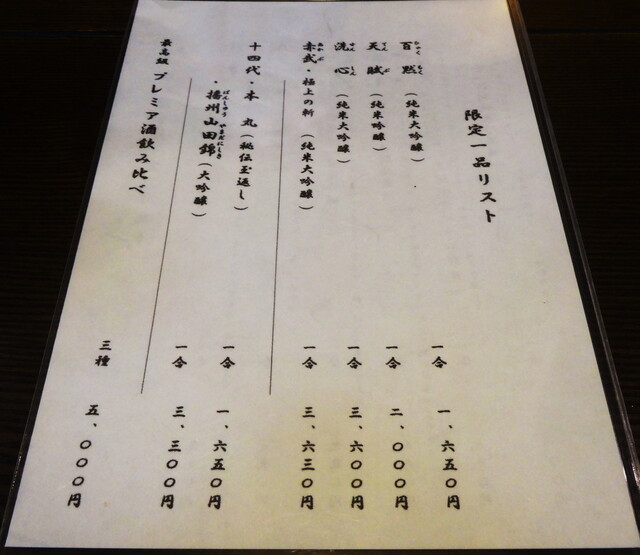 限定一品リスト
百黙（純米大吟醸） 一合 一、六五〇円
ひゃくもく
天賦（純米吟醸） 一合 二、〇〇〇円
てんぶ
洗心（純米大吟醸） 一合 三、六〇〇円
せんしん
赤武・極上の斬（純米大吟醸） 一合 三、六三〇円
あかぶ
十四代・本丸（秘伝玉返し） 一合 一、六五〇円
・播州山田錦（大吟醸） 一合 三、三〇〇円
ばんしゅうやまだにしき
最高級プレミア酒飲み比べ 三種 五、〇〇〇円